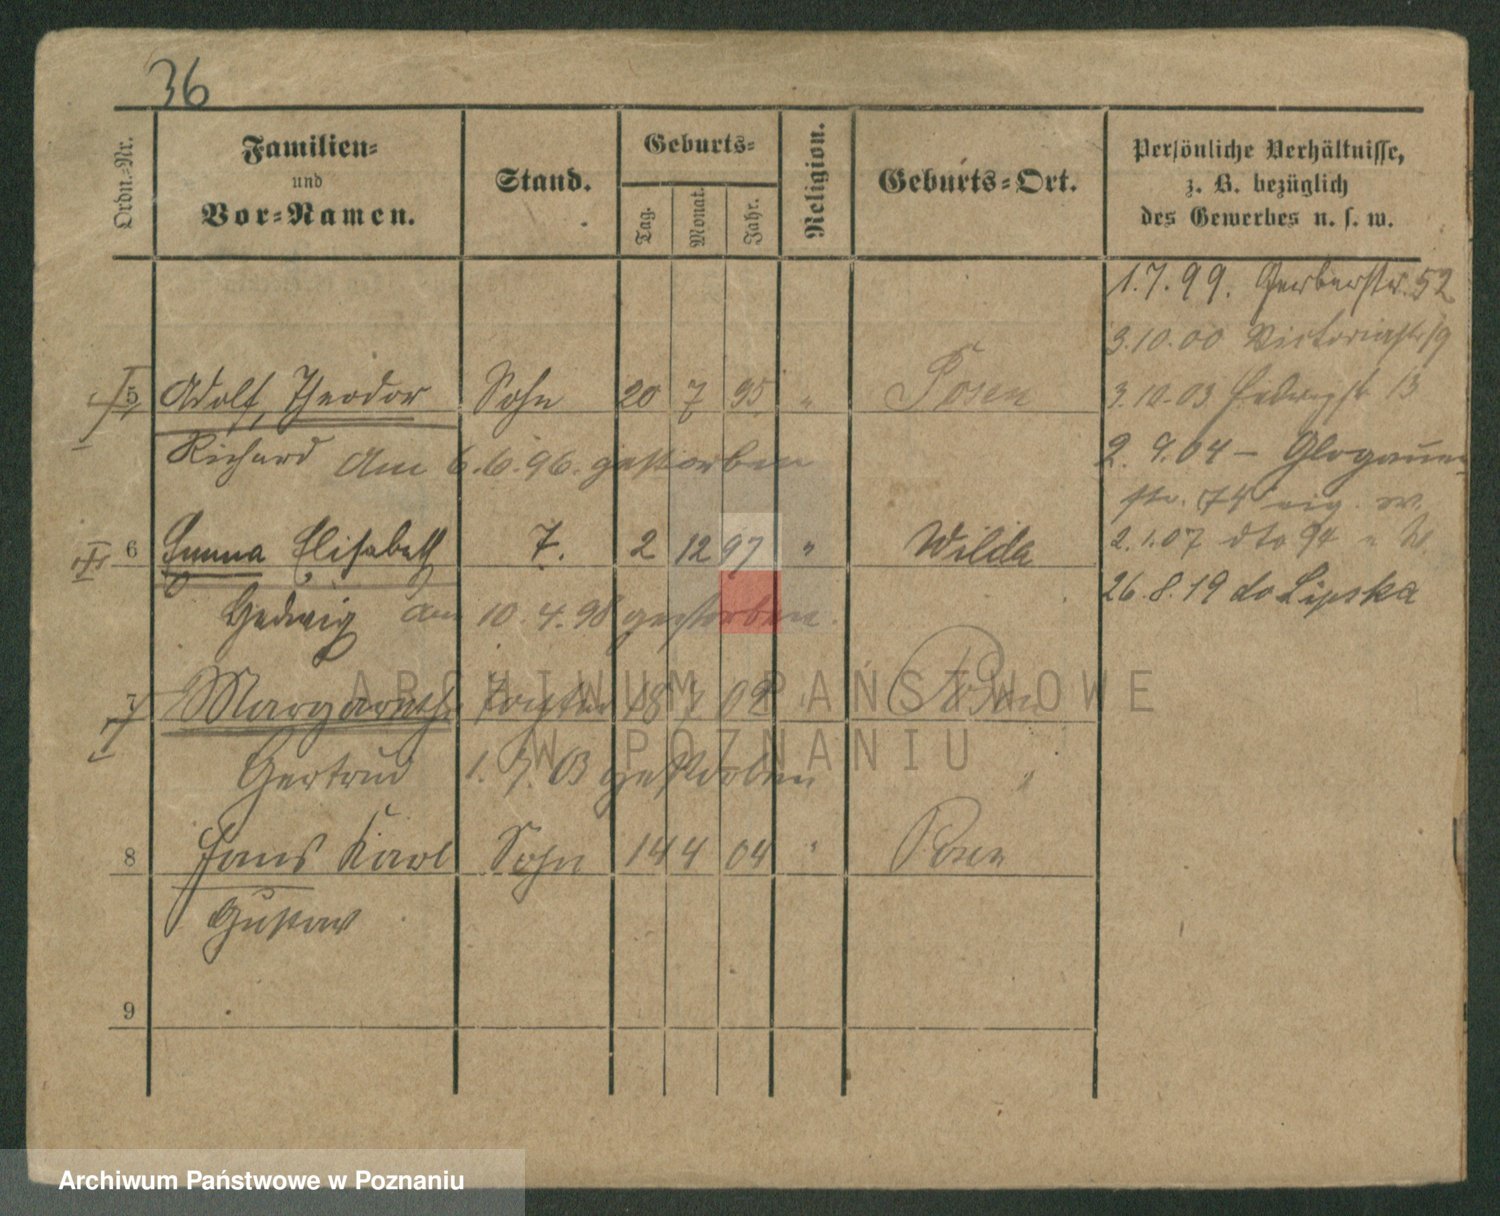 36
Ordn.-Nr.
Familien-
und
Vor-Namen.
Stand.
Geburts-
Tag.
Monat.
Jahr.
Religion.
Geburts-Ort.
Persönliche Verhältnisse,
z. B. bezüglich
des Gewerbes u. s. w.
1.7.99. Gerberstr. 52
3.10.00 Victoriastr 19
5 Adolf, Theodor Sohn 20 7 95 " Posen
3.10.03 Hedwigstr 13
Richard Am 6.6.96. gestorben
2. 9.04 – Glogauer
str. 74
6 Emma Elisabeth T. 2 12 97 " Wilda
2.1.07 dto 94
Hedwig am 10.4.98 gestorben.
26.8.19 do Lipska
7 Margarethe Tochter 18 7 02 Posen
Gertrud 1. 7. 03 gestorben "
8 Hans Karl Sohn 14 4 04 " Posen
Gustav
9
ARCHIWUM PAŃSTWOWE
W POZNANIU
Archiwum Państwowe w Poznaniu